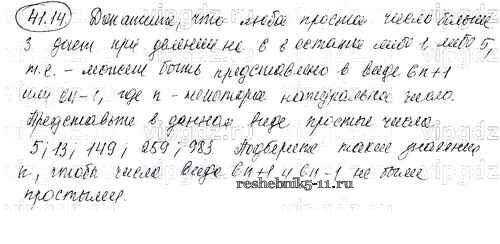 41.14 Докажите, что любое простое число больше
3 дает при делении на 6 в остатке либо 1 либо 5,
т.е. - может быть представлено в виде 6n+1
или 6n-1, где n - некоторое натуральное число.
Представьте в данном виде простые числа
5; 13; 149; 259; 983. Подберите такие значения
n, чтобы числа вида 6n+1 и 6n-1 не были
простыми.
reshebnik5-11.ru